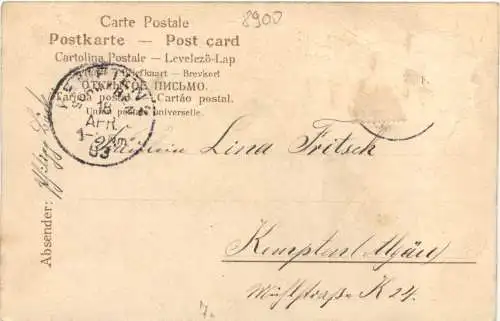 8900
Carte Postale
Postkarte — Post card
Cartolina Postale — Levelező-Lap
Brevkort
ПИСЬМО.
Cartão postal.
Union postale universelle.
KEMPTEN
18
APR.
03
Fräulein Lina Fritsch
Kempten (Algäu)
Mühlstraße K 24.
Absender:
7.